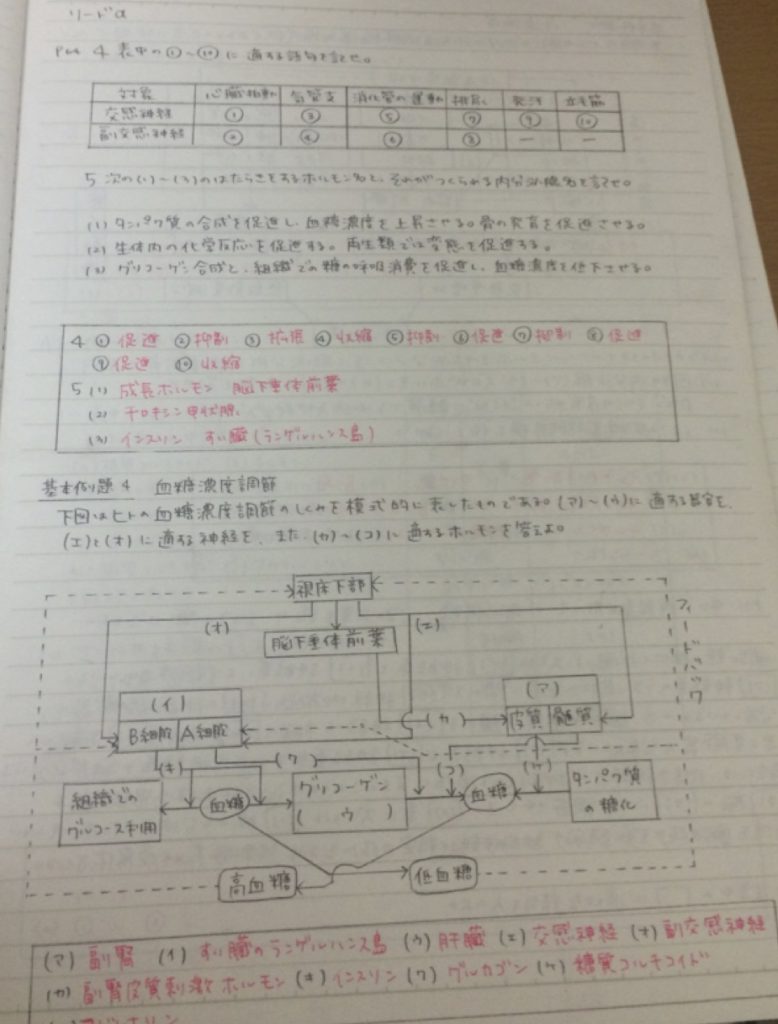 リードα
P64 4 表中の①~⑩に適する語句を記せ。
対象 心臓拍動 気管支 消化管の運動 排尿 発汗 立毛筋
交感神経 ① ③ ⑤ ⑦ ⑨ ⑩
副交感神経 ② ④ ⑥ ⑧ ー ー
5 次の(1)~(3)のはたらきをするホルモン名と、それがつくられる内分泌腺名を記せ。
(1) タンパク質の合成を促進し、血糖濃度を上昇させる。骨の発育を促進させる。
(2) 生体内の化学反応を促進する。両生類では変態を促進する。
(3) グリコーゲン合成と、組織での糖の呼吸消費を促進し、血糖濃度を低下させる。
4 ① 促進 ② 抑制 ③ 拡張 ④ 収縮 ⑤ 抑制 ⑥ 促進 ⑦ 抑制 ⑧ 促進
⑨ 促進 ⑩ 収縮
5 (1) 成長ホルモン 脳下垂体前葉
(2) チロキシン 甲状腺
(3) インスリン すい臓(ランゲルハンス島)
基本例題4 血糖濃度調節
下図はヒトの血糖濃度調節のしくみを模式的に表したものである。(ア)~(ウ)に適する器官を、
(エ)と(オ)に適する神経を、また、(カ)~(コ)に適するホルモンを答えよ。
視床下部
(オ)
(エ)
脳下垂体前葉
フィードバック
(イ)
(ア)
B細胞 A細胞
(カ)
皮質 髄質
(キ)
(ク)
(コ)
(ケ)
組織での
グルコース利用
血糖
グリコーゲン
( ウ )
血糖
タンパク質
の糖化
高血糖
低血糖
(ア) 副腎 (イ) すい臓のランゲルハンス島 (ウ) 肝臓 (エ) 交感神経 (オ) 副交感神経
(カ) 副腎皮質刺激ホルモン (キ) インスリン (ク) グルカゴン (ケ) 糖質コルチコイド